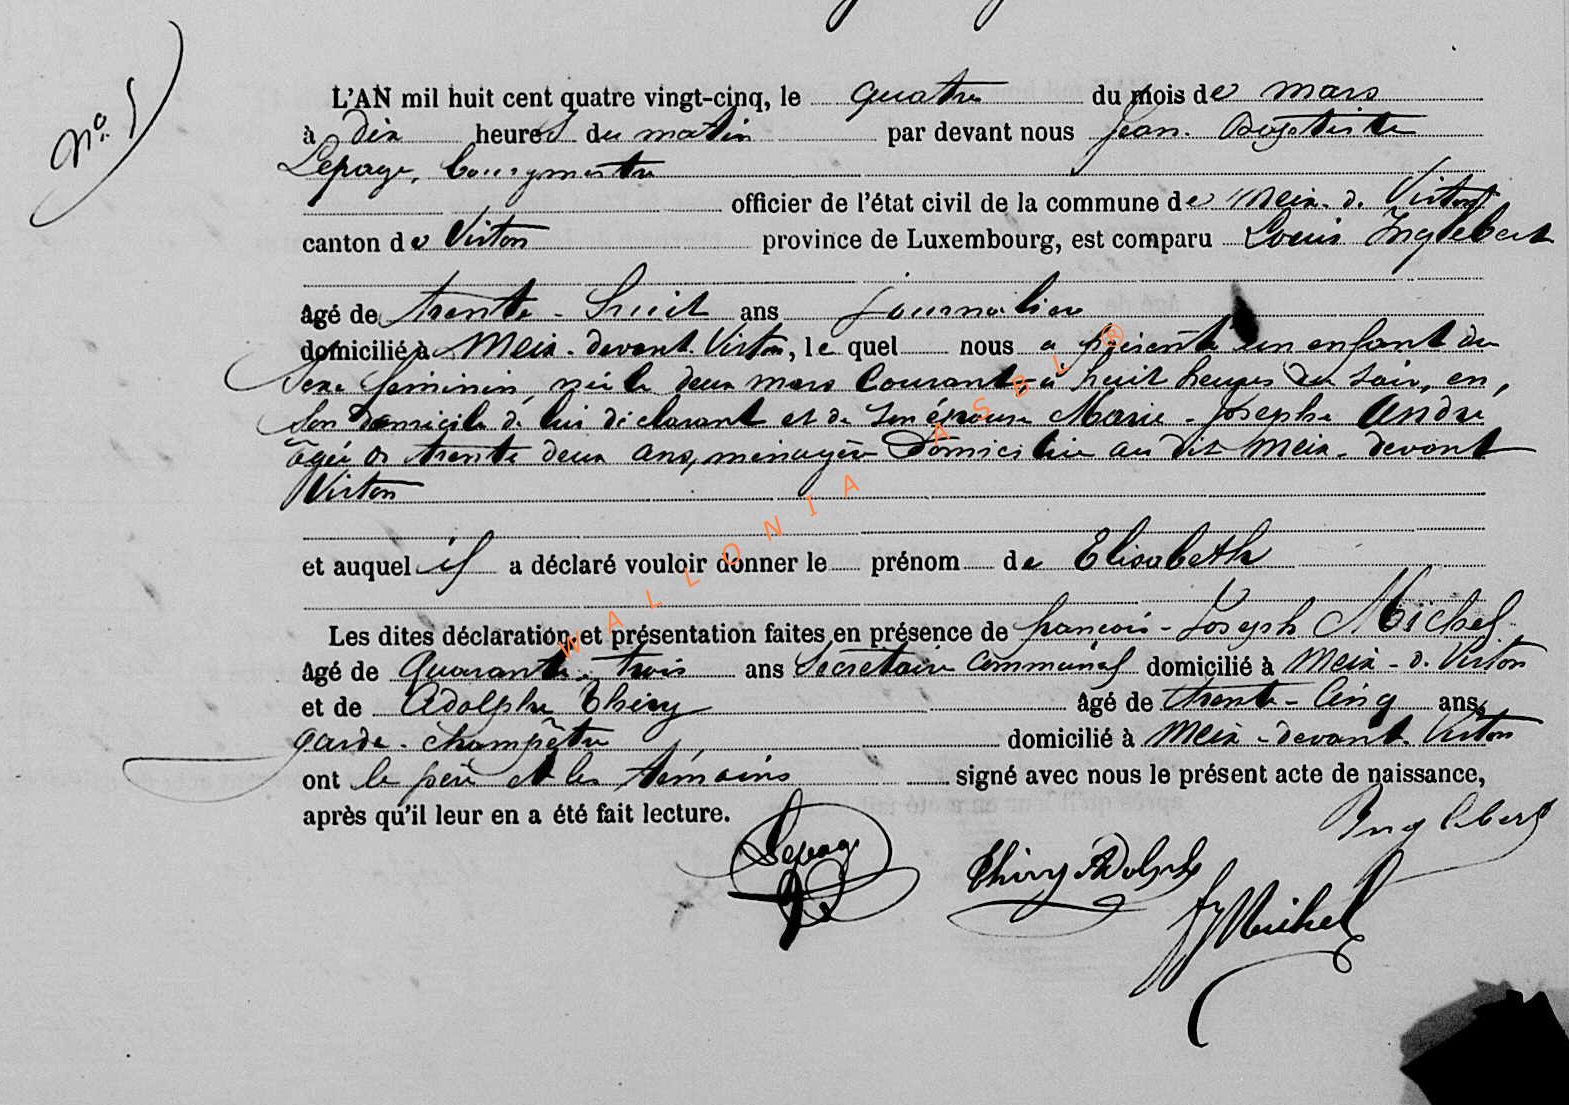 N° 5
L'AN mil huit cent quatre vingt-cinq, le quatre du mois de mars
à dix heures du matin par devant nous Jean-Baptiste
Lepage, bourgmestre
officier de l'état civil de la commune de Meix-d. Virton
canton de Virton province de Luxembourg, est comparu Louis Inglebert
âgé de trente-huit ans journalier
domicilié à Meix-devant-Virton, lequel nous a présenté un enfant du
sexe féminin, né le deux mars courant à huit heures du soir, en,
son domicile de lui déclarant et de son épouse Marie-Josephe André
âgée de trente deux ans, ménagère domiciliée au dit Meix-devant
Virton
et auquel il a déclaré vouloir donner le prénom de Elisabeth
Les dites déclaration et présentation faites en présence de françois-Joseph Michel
âgé de quarante-trois ans Secrétaire communal domicilié à Meix-d. Virton
et de Adolphe Thiry âgé de trente-cinq ans,
garde-champêtre domicilié à Meix-devant-Virton
ont le père et les témoins signé avec nous le présent acte de naissance,
après qu'il leur en a été fait lecture.
Inglebert
Lepage
Thiry Adolphe
fJMichel
WALLONIA ASBL ®